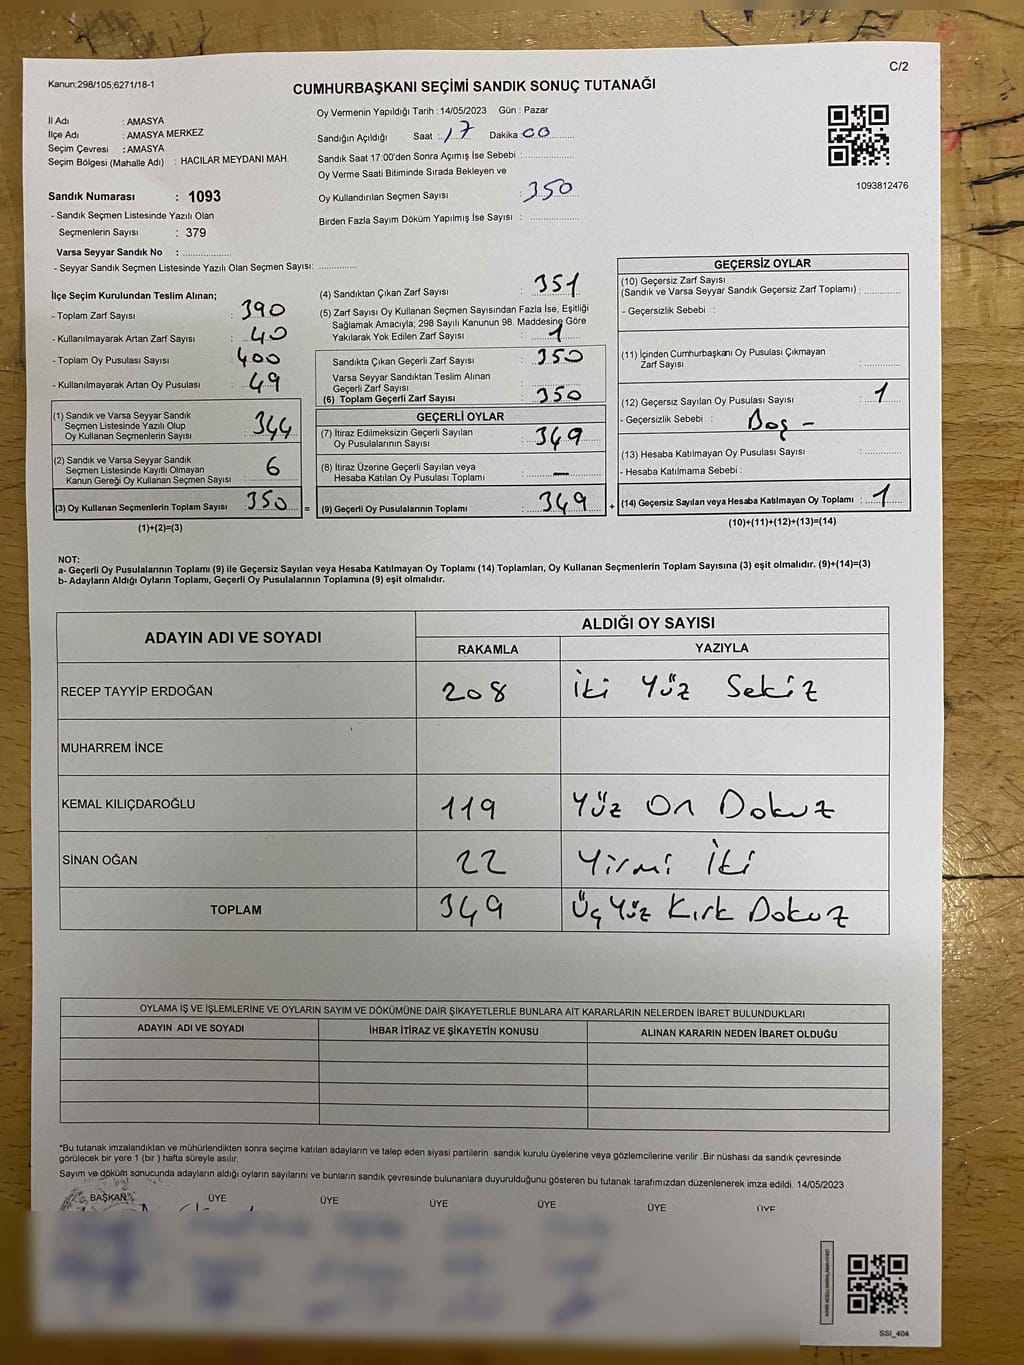 C/2
Kanun;298/105;6271/18-1
CUMHURBAŞKANI SEÇİMİ SANDIK SONUÇ TUTANAĞI
Oy Vermenin Yapıldığı Tarih :14/05/2023 Gün : Pazar
İl Adı : AMASYA
İlçe Adı : AMASYA MERKEZ
Seçim Çevresi : AMASYA
Seçim Bölgesi (Mahalle Adı) : HACILAR MEYDANI MAH.
Sandık Numarası : 1093
- Sandık Seçmen Listesinde Yazılı Olan
Seçmenlerin Sayısı : 379
Varsa Seyyar Sandık No : ..................
- Seyyar Sandık Seçmen Listesinde Yazılı Olan Seçmen Sayısı: ..............
Sandığın Açıldığı Saat : 17 Dakika 00
Sandık Saat 17:00'den Sonra Açımış İse Sebebi : ..................
Oy Verme Saati Bitiminde Sırada Bekleyen ve
Oy Kullandırılan Seçmen Sayısı : 350
Birden Fazla Sayım Döküm Yapılmış İse Sayısı : ..................
1093812476
İlçe Seçim Kurulundan Teslim Alınan;
- Toplam Zarf Sayısı : 390
- Kullanılmayarak Artan Zarf Sayısı : 40
- Toplam Oy Pusulası Sayısı : 400
- Kullanılmayarak Artan Oy Pusulası : 49
(1) Sandık ve Varsa Seyyar Sandık
Seçmen Listesinde Yazılı Olup
Oy Kullanan Seçmenlerin Sayısı : 344
(2) Sandık ve Varsa Seyyar Sandık
Seçmen Listesinde Kayıtlı Olmayan
Kanun Gereği Oy Kullanan Seçmen Sayısı : 6
(3) Oy Kullanan Seçmenlerin Toplam Sayısı : 350
(1)+(2)=(3)
=
(4) Sandıktan Çıkan Zarf Sayısı : 351
(5) Zarf Sayısı Oy Kullanan Seçmen Sayısından Fazla İse, Eşitliği
Sağlamak Amacıyla; 298 Sayılı Kanunun 98. Maddesine Göre
Yakılarak Yok Edilen Zarf Sayısı : 1
Sandıkta Çıkan Geçerli Zarf Sayısı : 350
Varsa Seyyar Sandıktan Teslim Alınan
Geçerli Zarf Sayısı : ..................
(6) Toplam Geçerli Zarf Sayısı : 350
GEÇERLİ OYLAR
(7) İtiraz Edilmeksizin Geçerli Sayılan
Oy Pusulalarının Sayısı : 349
(8) İtiraz Üzerine Geçerli Sayılan veya
Hesaba Katılan Oy Pusulası Toplamı : —
(9) Geçerli Oy Pusulalarının Toplamı : 349
+
GEÇERSİZ OYLAR
(10) Geçersiz Zarf Sayısı
(Sandık ve Varsa Seyyar Sandık Geçersiz Zarf Toplamı) : ..............
- Geçersizlik Sebebi :
(11) İçinden Cumhurbaşkanı Oy Pusulası Çıkmayan
Zarf Sayısı : ..............
(12) Geçersiz Sayılan Oy Pusulası Sayısı : 1
- Geçersizlik Sebebi : Boş -
(13) Hesaba Katılmayan Oy Pusulası Sayısı : ..............
- Hesaba Katılmama Sebebi :
(14) Geçersiz Sayılan veya Hesaba Katılmayan Oy Toplamı : 1
(10)+(11)+(12)+(13)=(14)
NOT:
a- Geçerli Oy Pusulalarının Toplamı (9) ile Geçersiz Sayılan veya Hesaba Katılmayan Oy Toplamı (14) Toplamları, Oy Kullanan Seçmenlerin Toplam Sayısına (3) eşit olmalıdır. (9)+(14)=(3)
b- Adayların Aldığı Oyların Toplamı, Geçerli Oy Pusulalarının Toplamına (9) eşit olmalıdır.
ADAYIN ADI VE SOYADI ALDIĞI OY SAYISI
RAKAMLA YAZIYLA
RECEP TAYYİP ERDOĞAN 208 İki Yüz Sekiz
MUHARREM İNCE
KEMAL KILIÇDAROĞLU 119 Yüz On Dokuz
SİNAN OĞAN 22 Yirmi İki
TOPLAM 349 Üç Yüz Kırk Dokuz
OYLAMA İŞ VE İŞLEMLERİNE VE OYLARIN SAYIM VE DÖKÜMÜNE DAİR ŞİKAYETLERLE BUNLARA AİT KARARLARIN NELERDEN İBARET BULUNDUKLARI
ADAYIN ADI VE SOYADI İHBAR İTİRAZ VE ŞİKAYETİN KONUSU ALINAN KARARIN NEDEN İBARET OLDUĞU
*Bu tutanak imzalandıktan ve mühürlendikten sonra seçime katılan adayların ve talep eden siyasi partilerin sandık kurulu üyelerine veya gözlemcilerine verilir .Bir nüshası da sandık çevresinde
görülecek bir yere 1 (bir ) hafta süreyle asılır.
Sayım ve döküm sonucunda adayların aldığı oyların sayılarını ve bunların sandık çevresinde bulunanlara duyurulduğunu gösteren bu tutanak tarafımızdan düzenlenerek imza edildi. 14/05/2023
BAŞKAN ÜYE ÜYE ÜYE ÜYE ÜYE ÜYE
SSI_404